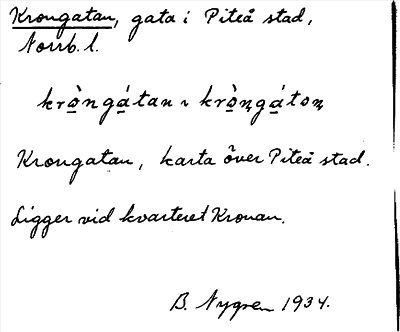 Krongatan, gata i Piteå stad,
Norrb. l.
krò̲ngá̲tan ~ krò̲ŋgá̲ton̥
Krongatan, karta över Piteå stad.
Ligger vid kvarteret Kronan.
B. Nygren 1934.